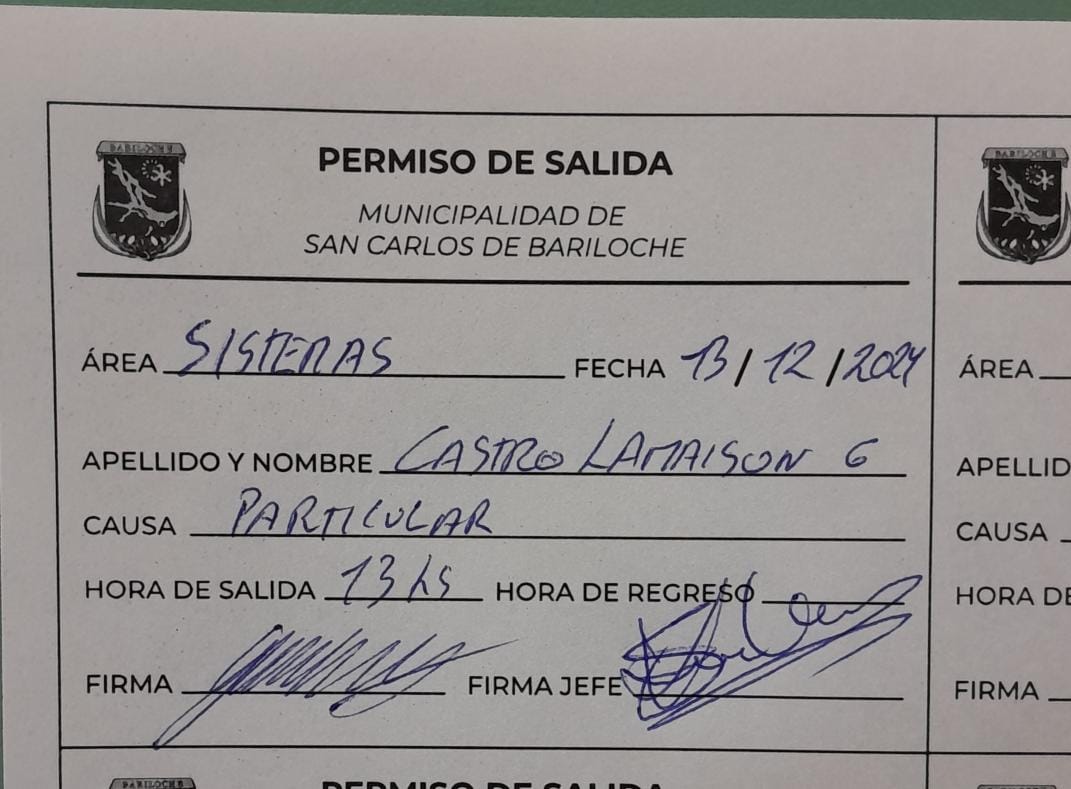 BARILOCHE
PERMISO DE SALIDA
MUNICIPALIDAD DE
SAN CARLOS DE BARILOCHE
ÁREA SISTEMAS FECHA 13/12/2024
APELLIDO Y NOMBRE CASTRO LAMAISON G
CAUSA PARTICULAR
HORA DE SALIDA 13 hs HORA DE REGRESO
FIRMA FIRMA JEFE
BARILOCHE
ÁREA
APELLID
CAUSA
HORA DE
FIRMA
BARILOCHE
PERMISO DE SALIDA